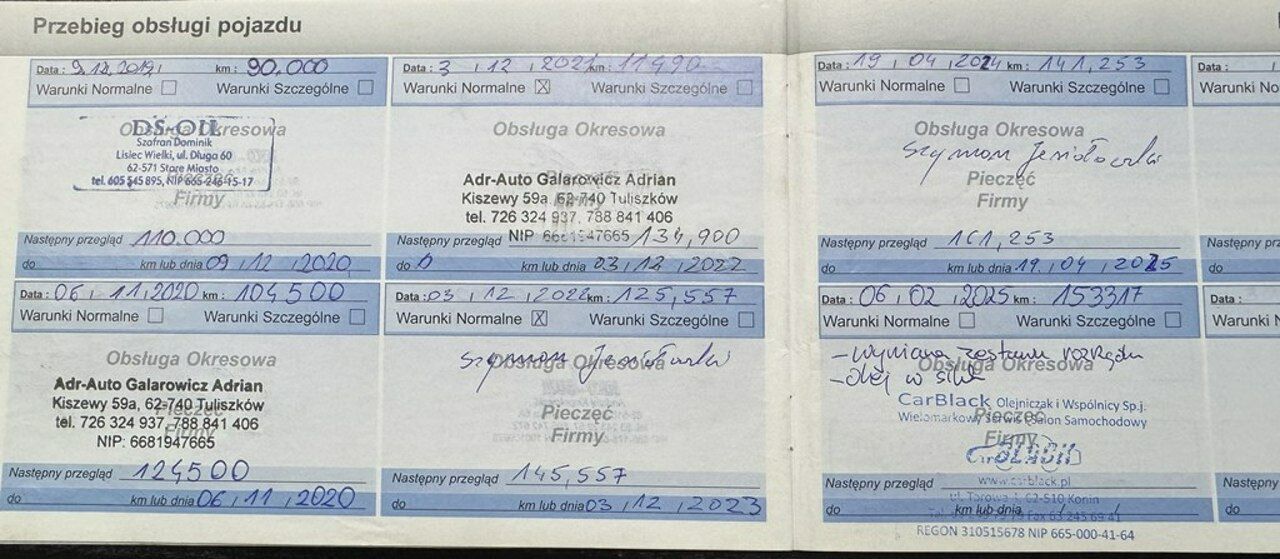 Przebieg obsługi pojazdu
Data : 9.12.2019 km : 90.000
Warunki Normalne Warunki Szczególne
Obsługa Okresowa
DS-OIL
Szafran Dominik
Lisiec Wielki, ul. Długa 60
62-571 Stare Miasto
tel. 605 545 895, NIP 665-246-15-17
Pieczęć
Firmy
Następny przegląd 110.000
do km lub dnia 09, 12, 2020
Data : 06, 11, 2020 km : 104500
Warunki Normalne Warunki Szczególne
Obsługa Okresowa
Adr-Auto Galarowicz Adrian
Kiszewy 59a, 62-740 Tuliszków
tel. 726 324 937, 788 841 406
NIP: 6681947665
Następny przegląd 124500
do km lub dnia 06, 11, 2020
Data : 3, 12, 2021 km :
Warunki Normalne X Warunki Szczególne
Obsługa Okresowa
Adr-Auto Galarowicz Adrian
Kiszewy 59a, 62-740 Tuliszków
tel. 726 324 937, 788 841 406
NIP 6681947665
Następny przegląd 134,900
do km lub dnia 03, 12, 2022
Data : 03, 12, 2022 km : 125,557
Warunki Normalne X Warunki Szczególne
Obsługa Okresowa
Szymon
Pieczęć
Firmy
Następny przegląd 145,557
do km lub dnia 03, 12, 2023
Data : 19, 04, 2024 km : 141,253
Warunki Normalne Warunki Szczególne
Obsługa Okresowa
Szymon
Pieczęć
Firmy
Następny przegląd 161,253
do km lub dnia 19, 04, 2025
Data : 06, 02, 2025 km : 153317
Warunki Normalne Warunki Szczególne
- wymiana zestawu rozrządu
Obsługa Okresowa
- olej w
CarBlack Olejniczak i Wspólnicy Sp.j.
Wielomarkowy Serwis i Salon Samochodowy
Pieczęć
Firmy
CarBlack
Następny przegląd
www.carblack.pl
ul. Torowa 62-510 Konin
do km lub dnia
Fax 63 245 69 41
REGON 310515678 NIP 665-000-41-64
Data :
Warunki No
Następny prz
do
Data :
Warunki N
Następny
do